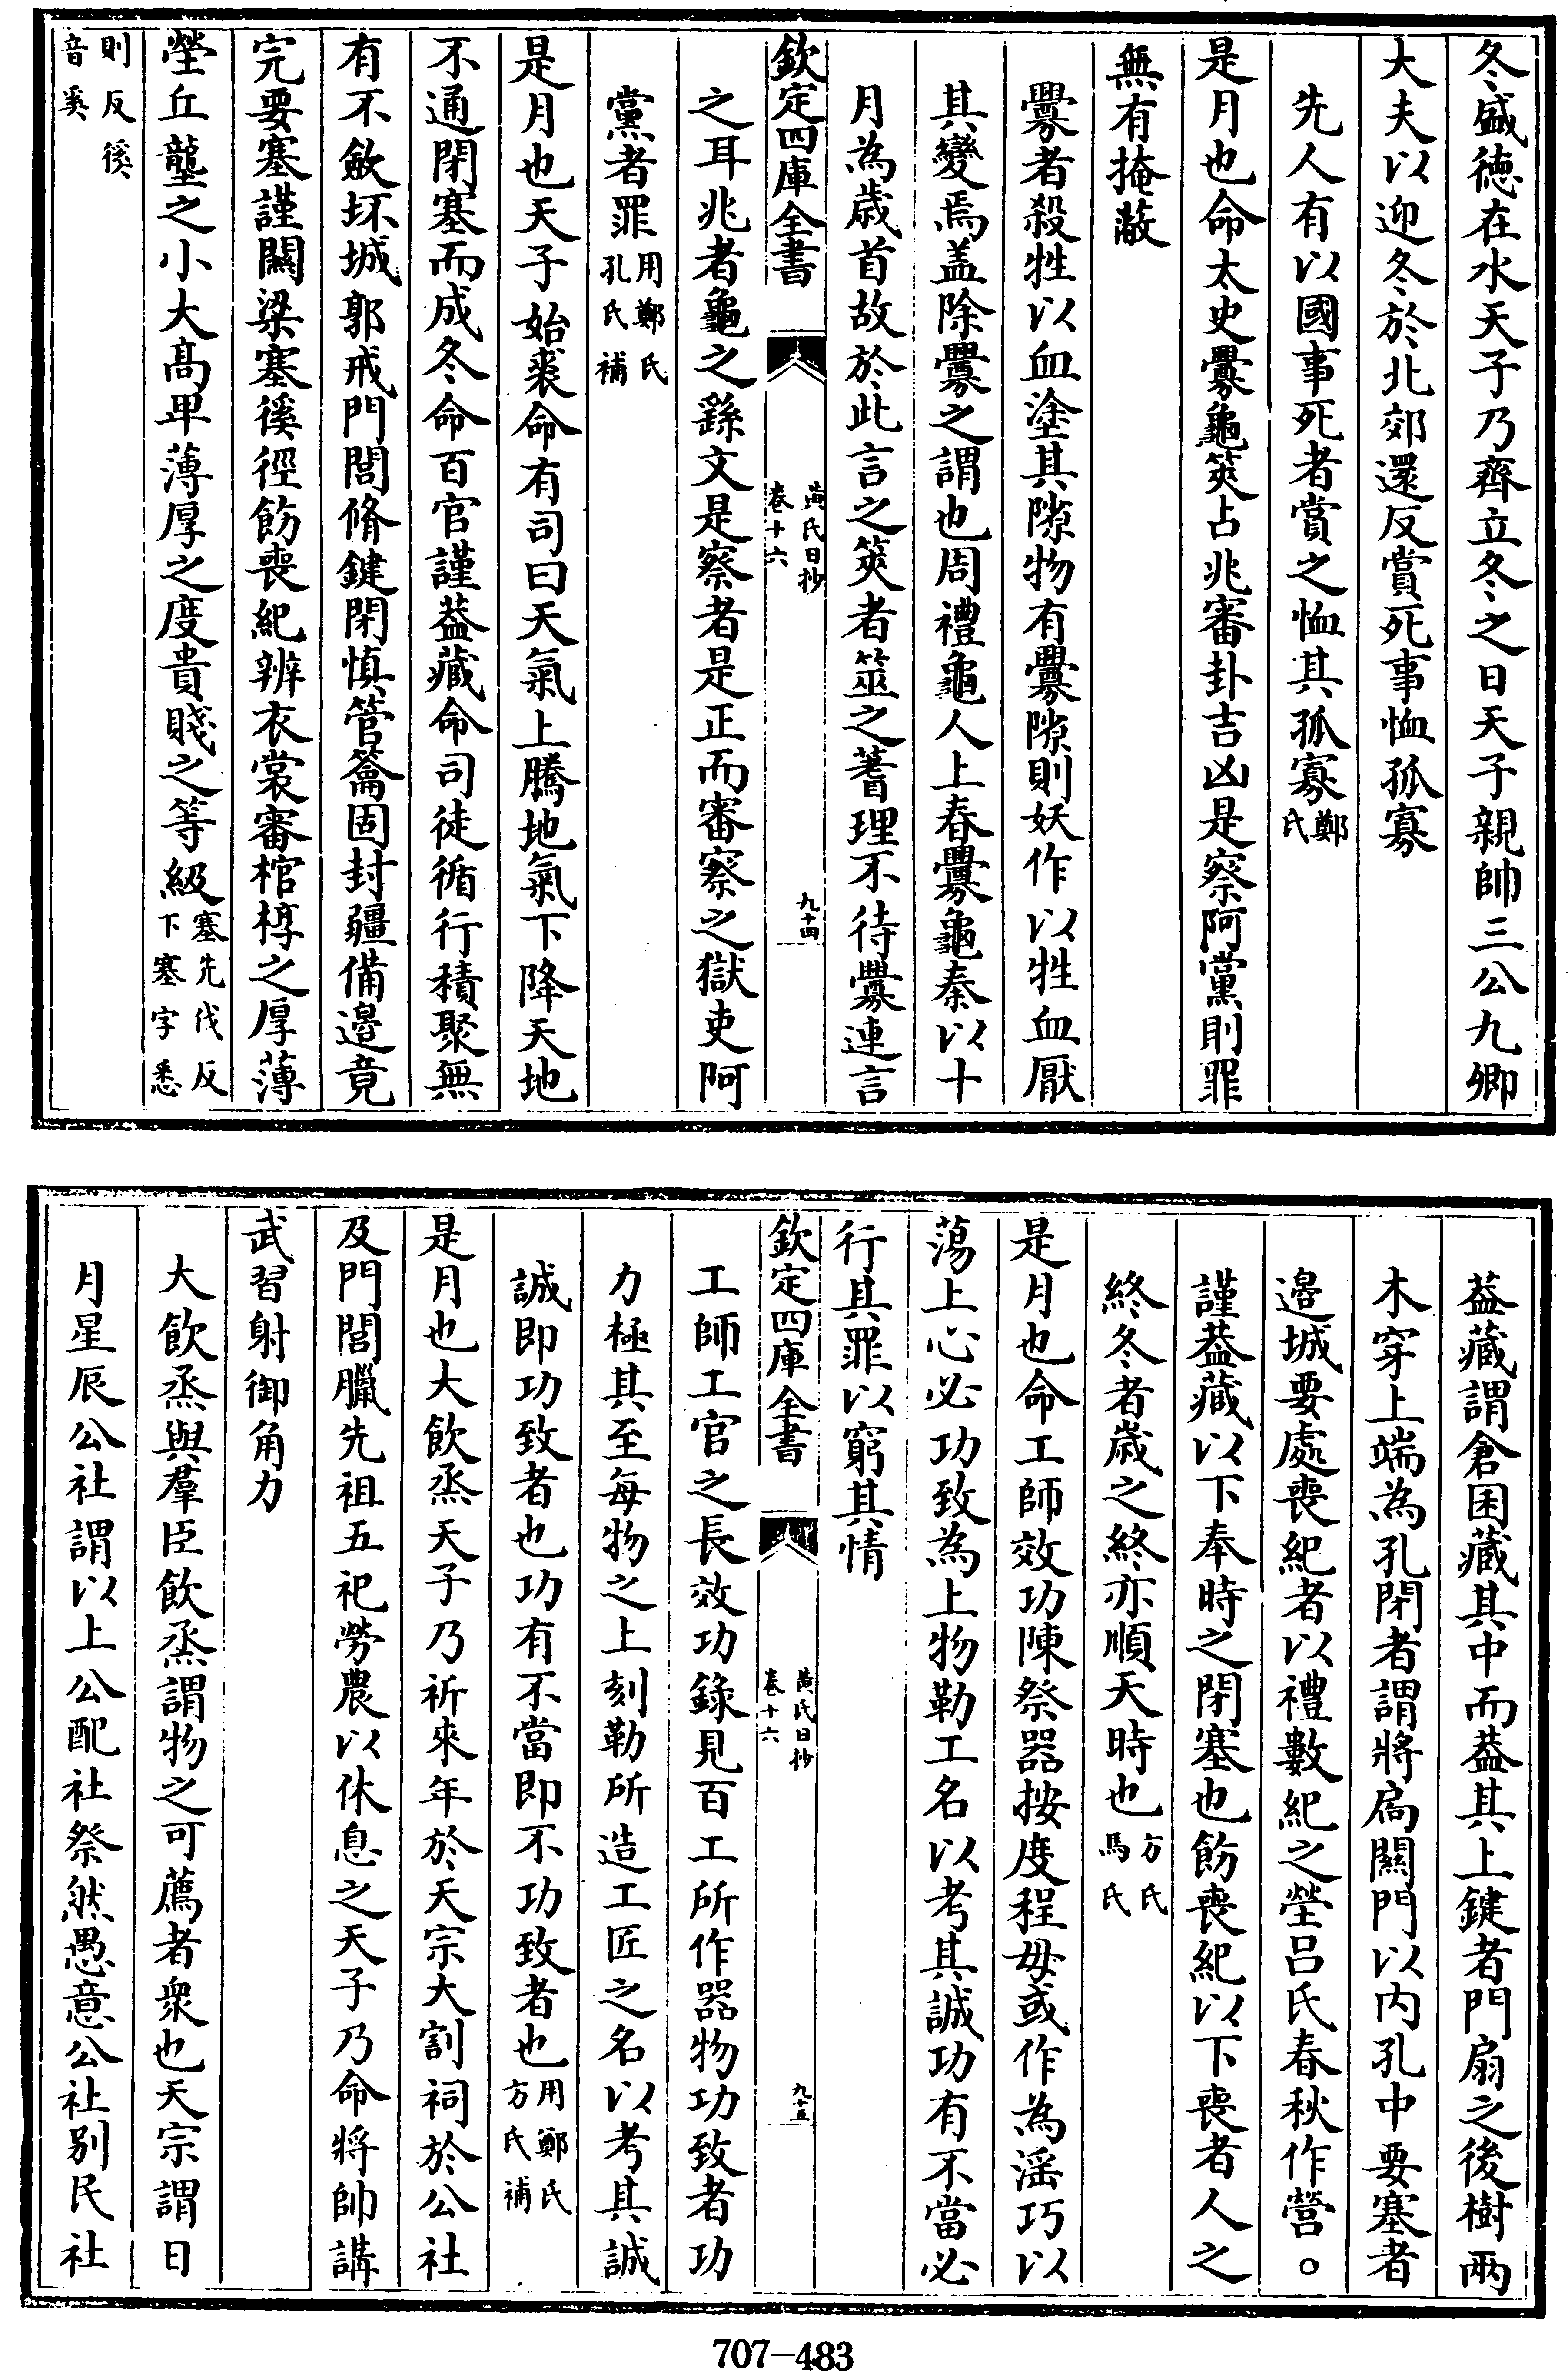 冬盛徳在水天子乃齊立冬之日天子親帥三公九卿
大夫以迎冬於北郊還反賞死事恤孤寡
先人有以國事死者賞之恤其孤寡鄭氏
是月也命太史釁龜筴占兆審卦吉凶是察阿黨則罪
無有掩蔽
釁者殺牲以血塗其隙物有釁隙則妖作以牲血厭
其變焉盖除釁之謂也周禮龜人上春釁龜秦以十
月為歳首故於此言之筴者筮之蓍理不待釁連言
欽定四庫全書
黄氏日抄
卷十六
九十四
之耳兆者龜之繇文是察者是正而審察之獄吏阿
黨者罪用鄭氏孔氏補
是月也天子始裘命有司曰天氣上騰地氣下降天地
不通閉塞而成冬命百官謹葢藏命司徒循行積聚無
有不斂坏城郭戒門閭脩鍵閉慎管籥固封疆備邉竟
完要塞謹關梁塞徯徑飭喪紀辨衣裳審棺椁之厚薄
塋丘壟之小大髙卑薄厚之度貴賤之等級塞先伐反下塞字悉
則反徯音奚
葢藏謂倉囷藏其中而葢其上鍵者門扇之後樹兩
木穿上端為孔閉者謂將扃關門以内孔中要塞者
邉城要處喪紀者以禮數紀之塋吕氏春秋作營。
謹葢藏以下奉時之閉塞也飭喪紀以下喪者人之
終冬者歳之終亦順天時也方氏馬氏
是月也命工師效功陳祭器按度程毋或作為淫巧以
蕩上心必功致為上物勒工名以考其誠功有不當必
行其罪以窮其情
欽定四庫全書
黄氏日抄
卷十六
九十五
工師工官之長效功錄見百工所作器物功致者功
力極其至每物之上刻勒所造工匠之名以考其誠
誠即功致者也功有不當即不功致者也用鄭氏方氏補
是月也大飲烝天子乃祈來年於天宗大割祠於公社
及門閭臘先祖五祀勞農以休息之天子乃命將帥講
武習射御角力
大飲烝與羣臣飲烝謂物之可薦者衆也天宗謂日
月星辰公社謂以上公配社祭然愚意公社别民社
707-483